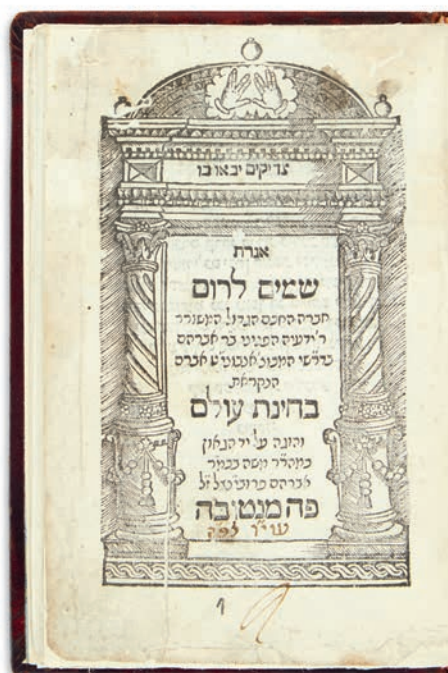 צדיקים יבאו בו
אגרת
שמים לרום
חברה החכם הגדול המשורר
ר׳ ידעיה הפניני בר אברהם
בדרשי המכונ׳ אנבוני״ט אברם
הנקראת
בחינת עולם
והוגה על יד הגאון
כמהר״ר משה בכמ״ר
אברהם פרווינצאל ז״ל
פה מנטובה
שי״ו לפק